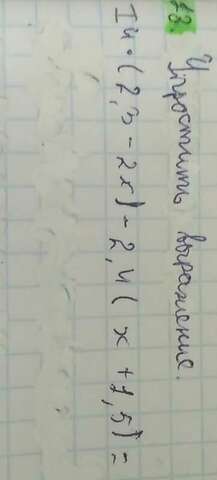 13. Упростить выражение.
14 · (2,3 - 2x) - 2,4 (x + 1,5) =